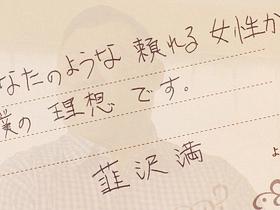 なたのような 頼れる 女性か
僕の 理想 です。
韮沢満
よ